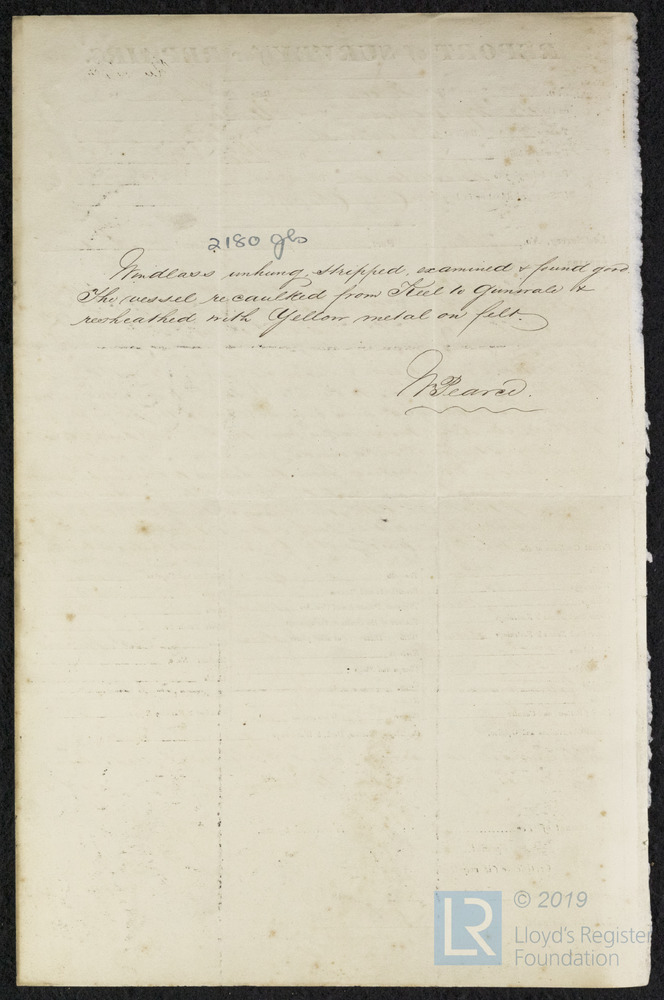 2180 gls
Windlass unhung, stripped, examined & found good
The vessel recaulked from Keel to Gunwale &
resheathed with Yellow metal on felt.
W Pearce.
© 2019
LR
Lloyd's Register
Foundation